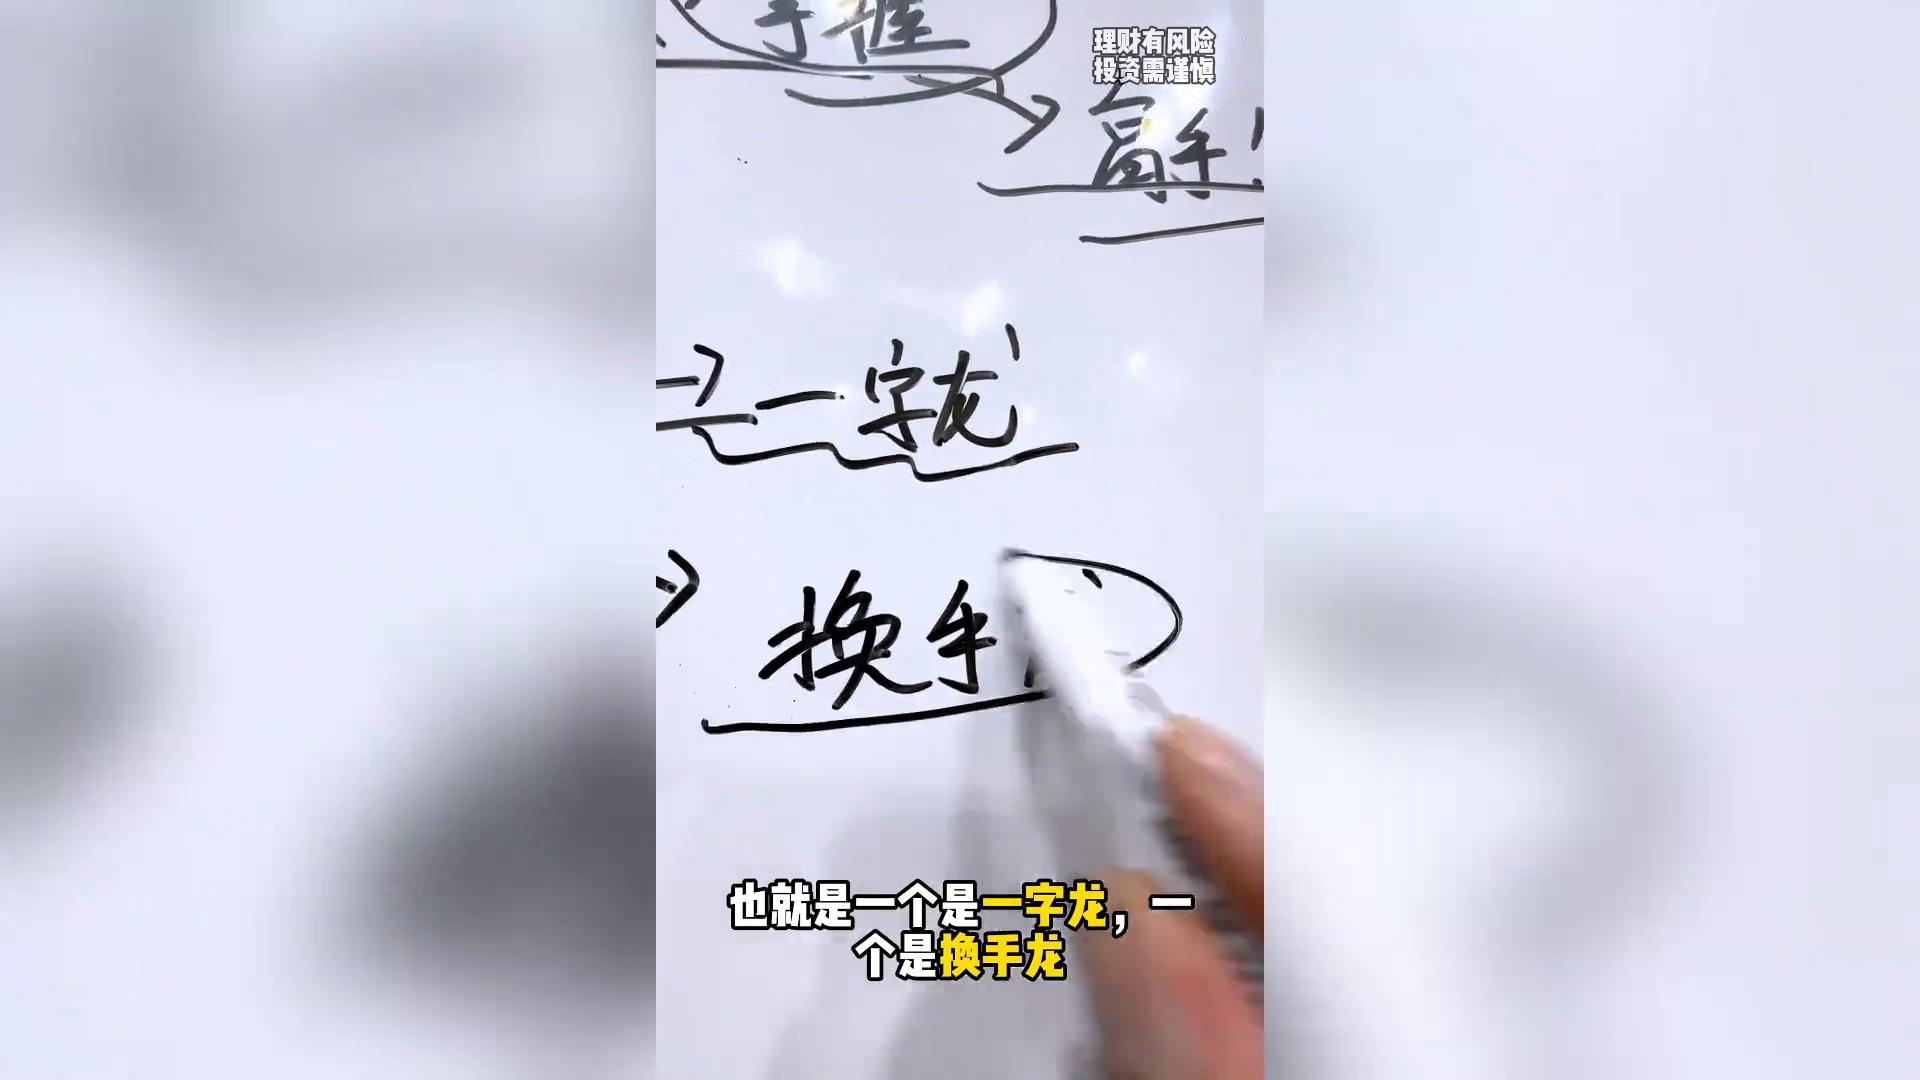 理财有风险
投资需谨慎
手握
高手
一字龙
换手
也就是一个是一字龙，一
个是换手龙